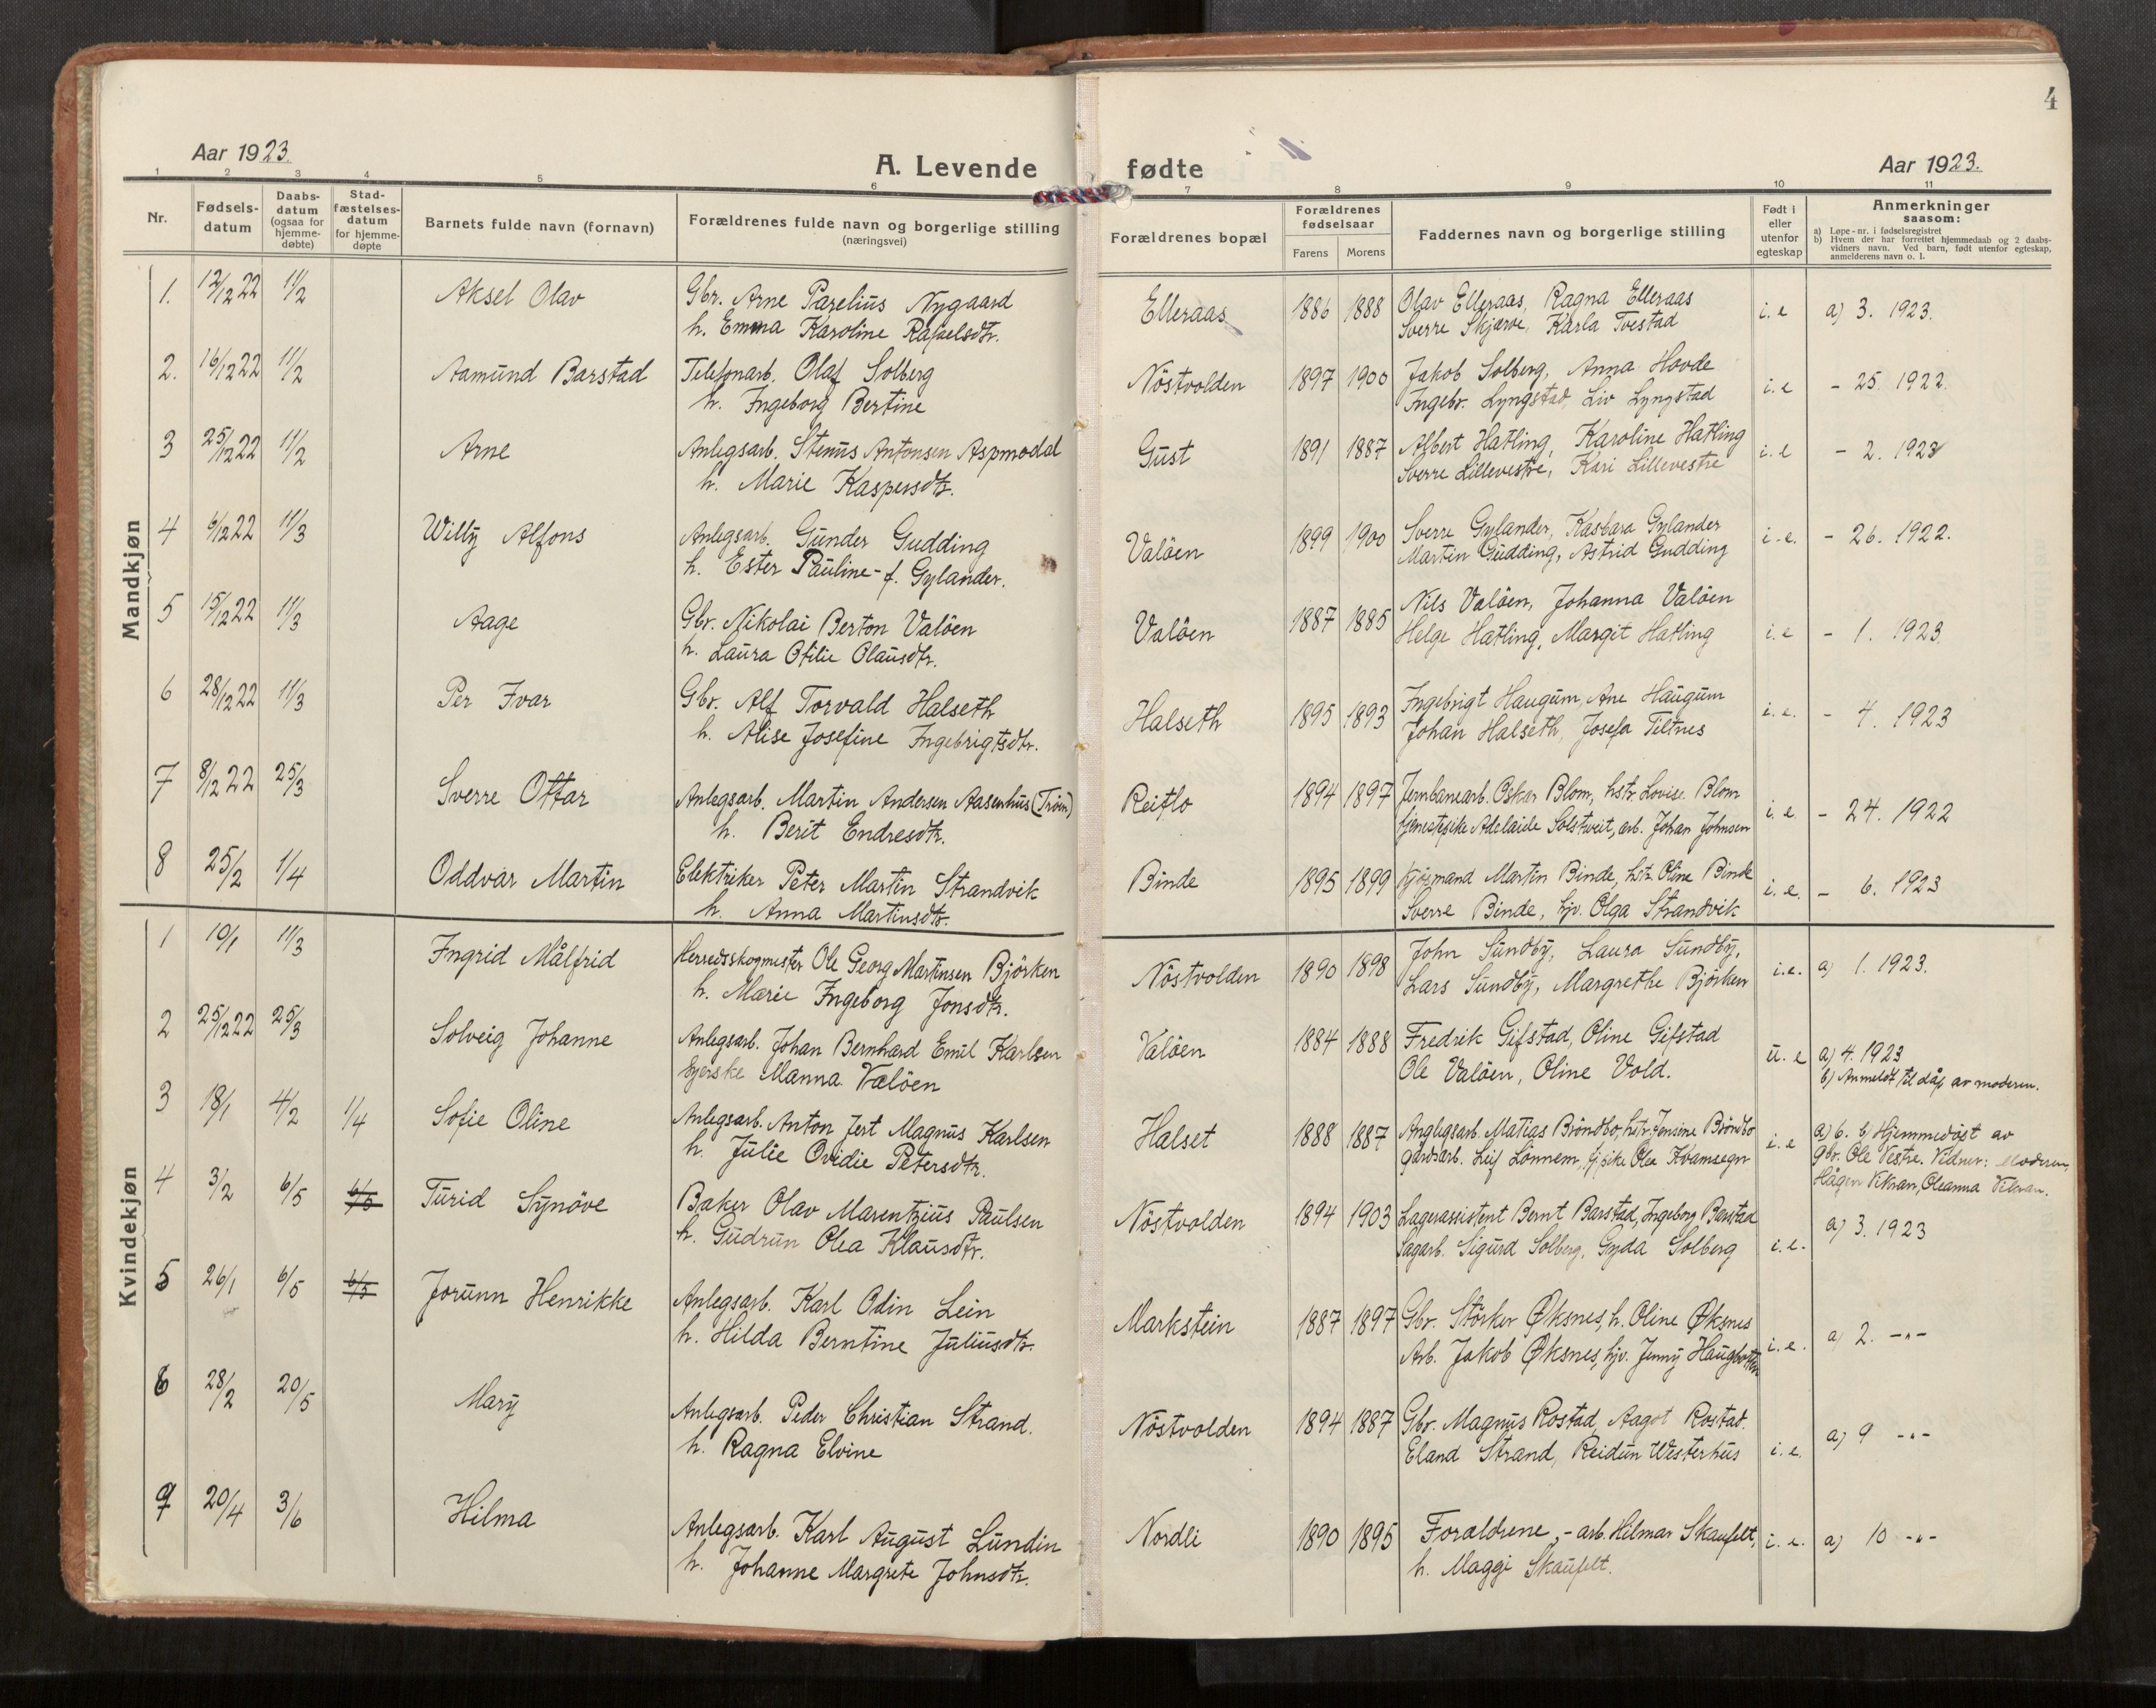 4
Aar 1923.
A. Levende fødte
Aar 1923.
1 2 3 4 5 6 7 8 9 10 11
Nr.
Fødsels-
datum
Daabs-
datum
(ogsaa for
hjemme-
døbte)
Stad-
fæstelses-
datum
for hjemme-
døpte
Barnets fulde navn (fornavn)
Forældrenes fulde navn og borgerlige stilling
(næringsvei)
Forældrenes bopæl
Forældrenes
fødselsaar
Farens Morens
Faddernes navn og borgerlige stilling
Født i
eller
utenfor
egteskap
Anmerkninger
saasom:
a) Løpe-nr. i fødselsregistret
b) Hvem der har forrettet hjemmedaab og 2 daabs-
vidners navn. Ved barn, født utenfor egteskap,
anmelderens navn o. l.
Mandkjøn
1. 12/12 22 11/2 Aksel Olav Gbr. Arne Parelius Nygaard Elleraas 1886 1888 Olav Elleraas, Ragna Elleraas i.e a) 3. 1923.
h. Emma Karoline Rafaelsdtr. Sverre Skjærve, Karla Tvestad
2. 16/12 22 11/2 Aamund Barstad Telefonarb. Olaf Solberg Nöstvolden 1897 1900 Jakob Solberg, Anna Hovde i.e - 25. 1922.
h. Ingeborg Bertine Ingebr. Lyngstad, Liv Lyngstad
3 25/12 22 11/2 Arne Anlegsarb. Stenus Antonsen Aspmodal Gust 1891 1887 Albert Hatling, Karoline Hatling i.e - 2. 1923
h. Marie Kaspersdtr. Sverre Lillevestre, Kari Lillevestre
4 6/12 22 11/3 Willy Alfons Anlegsarb. Gunder Gudding Valöen 1899 1900 Sverre Gylander, Kasbara Gylander i.e. - 26. 1922.
h. Ester Pauline - f. Gylander. Martin Gudding, Astrid Gudding
5 15/12 22 11/3 Aage Gbr. Nikolai Berton Valöen Valöen 1887 1885 Nils Valöen, Johanna Valöen i.e - 1. 1923.
h. Laura Otilie Olausdtr. Helge Hatling, Margit Hatling
6 28/12 22 11/3 Per Ivar Gbr. Alf Torvald Halseth Halseth 1895 1893 Ingebrigt Haugum, Ane Haugum i.e. - 4. 1923
h. Alise Josefine Ingebrigtsdtr. Johan Halseth, Josefa Tiltnes
7 8/12 22 25/3 Sverre Ottar Anlegsarb. Martin Andersen Aasenhus (Tröen) Reitlo 1894 1897 Jernbanearb. Oskar Blom, hstr. Lovise Blom i.e. - 24. 1922
h. Berit Endresdtr. tjenestepike Adelaide Solstveit, arb. Johan Johnsen
8 25/2 1/4 Oddvar Martin Elektriker Peter Martin Strandvik Binde 1895 1899 Martin Binde, hstr. Oline Binde i.e. - 6. 1923
h. Anna Martinsdtr. Sverre Binde, hjv. Olga Strandvik
Kvindekjøn
1 10/1 11/3 Ingrid Målfrid Herredsskogmester Ole Georg Martinsen Björken Nöstvolden 1890 1898 John Sundby, Laura Sundby, i.e. a) 1. 1923.
h. Marie Ingeborg Jonsdtr. Lars Sundby, Margrethe Björken
2 25/12 22 25/3 Solveig Johanne Anlegsarb. Johan Bernhard Emil Karlsen Valöen 1884 1888 Fredrik Gifstad, Oline Gifstad u.e a) 4. 1923
Syerske Manna Valöen Ole Valöen, Oline Vold. b) Anmeldt til dåp av moderen.
3 18/1 4/2 1/4 Sofie Oline Anlegsarb. Anton Jert Magnus Karlsen Halset 1888 1887 Anglegsarb. Matias Bröndbo, hstr. Jensine Bröndbo i.e a) 6. b) Hjemmedöpt av
h. Julie Ovidie Petersdtr. gardsarb. Leif Lönnem, tj.pike Olea Kvamsegn gbr. Ole Vestre. Vidner: Moderen,
Hågen Vikran, Oleanna Vikran.
4 3/2 6/5 6/5 Turid Synöve Baker Olav Marentzius Paulsen Nöstvolden 1894 1903 Lagerassistent Bernt Barstad, Ingeborg Barstad i.e. a) 3. 1923
h. Gudrun Olea Klausdtr. Sagarb. Sigurd Solberg, Gyda Solberg
5 26/1 6/5 6/5 Jorunn Henrikke Anlegsarb. Karl Odin Lein Markstein 1887 1897 Gbr. Störker Øksnes, h. Oline Øksnes i.e. a) 2. -"-
h. Hilda Berntine Juliusdtr. Arb. Jakob Øksnes, hjv. Jenny
6 28/2 20/5 Mary Anlegsarb. Peder Christian Strand. Nöstvolden 1894 1887 Gbr. Magnus Rostad, Aagot Rostad. i.e. a) 9 -"-
h. Ragna Elvine Eland Strand, Reidun Westerhus
7 20/4 3/6 Hilma Anlegsarb. Karl August Lundin Nordli 1890 1895 Forældrene, - arb. Hilmar Skaufelt, i.e. a) 10 -"-
h. Johanne Margrete Johnsdtr. h. Maggi Skaufelt.